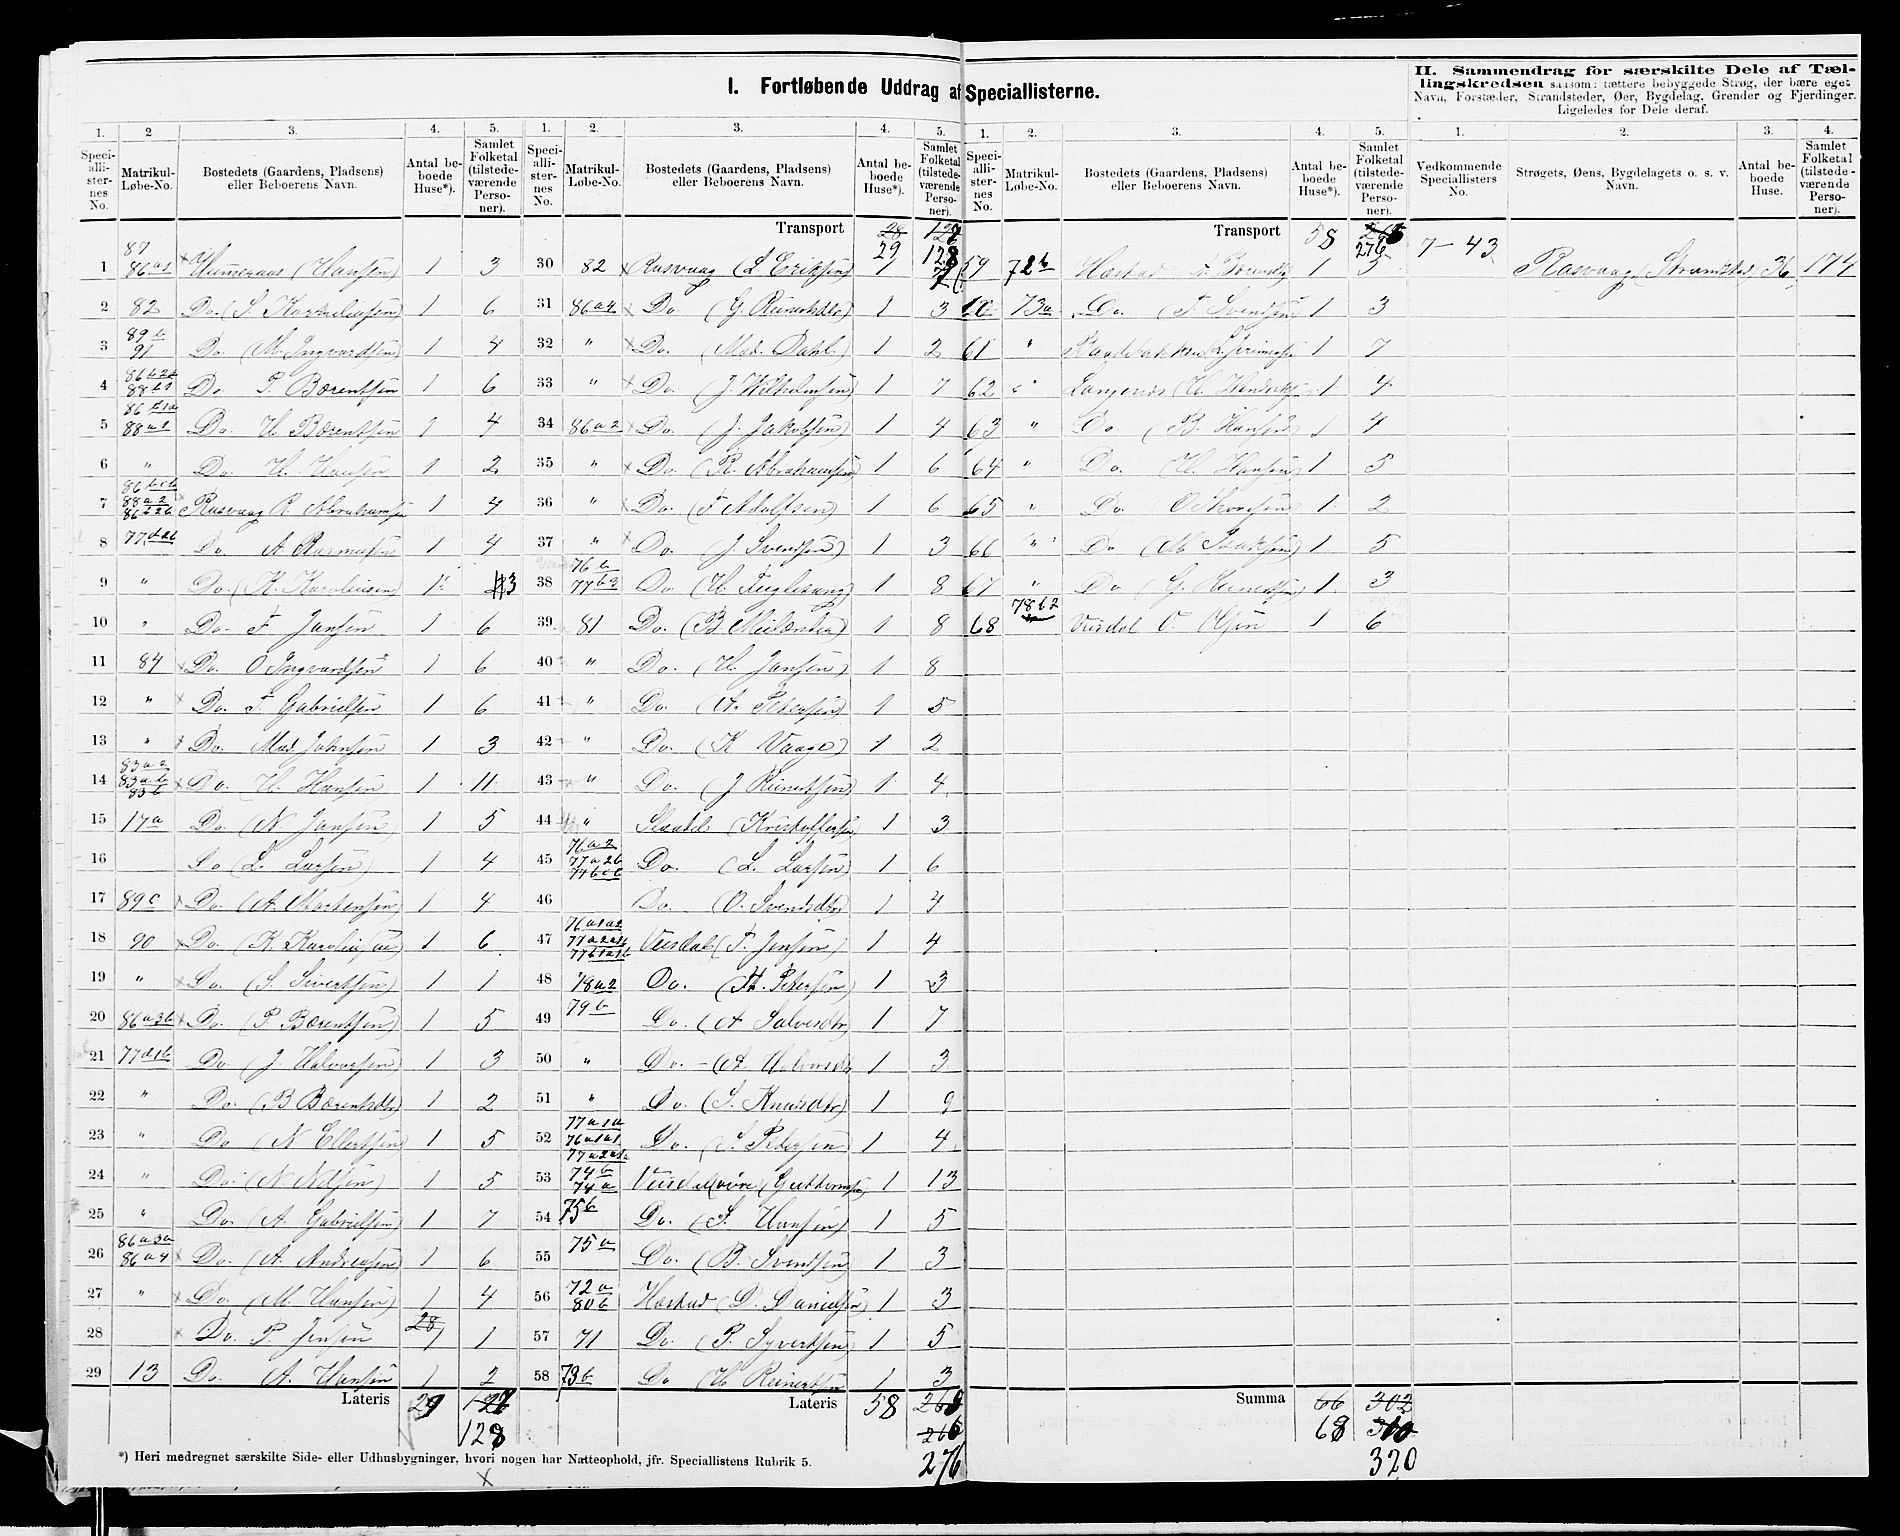 I. Fortløbende Uddrag af Speciallisterne.
II. Sammendrag for særskilte Dele af Tællingskredsen saasom: tættere bebyggede Strøg, der bære eget
Navn, Forstæder, Strandsteder, Øer, Bygdelag, Grender og Fjerdinger.
Ligeledes for Dele deraf.
1. 2 3. 4. 5. 1. 2. 3. 4. 5. 1. 2. 3. 4. 5. 1. 2. 3. 4.
Speciallisternes No. Matrikul-Løbe-No. Bostedets (Gaardens, Pladsens) eller Beboerens Navn. Antal beboede Huse*). Samlet Folketal (tilstedeværende Personer).
Speciallisternes No. Matrikul-Løbe-No. Bostedets (Gaardens, Pladsens) eller Beboerens Navn. Antal beboede Huse*). Samlet Folketal (tilstedeværende Personer).
Speciallisternes No. Matrikul-Løbe-No. Bostedets (Gaardens, Pladsens) eller Beboerens Navn. Antal beboede Huse*). Samlet Folketal (tilstedeværende Personer).
Vedkommende Speciallisters No. Strøgets, Øens, Bygdelagets o. s. v. Navn. Antal beboede Huse. Samlet Folketal (tilstedeværende Personer).
1 87 86a1 (Hansen) 1 3
2 82 Do. 1 6
3 89b 91 Do. (M. Ingvardsen) 1 4
4 Do P. Bærentsen 1 6
5 88a1 Do. H. Bærentsen 1 4
6 " Do. H. Hansen 1 2
7 88a2 86b2b Rasvaag R. Abrahamsen 1 4
8 Do. A. Rasmusen 1 4
9 " Do. (K. Karoliusen 1 3
10 " Do. F. Jansen 1 6
11 84 Do. O Ingvardsen 1 6
12 " Do. F. Gabrielsen 1 6
13 " Do. Mad. Johnsen 1 3
14 83ab 83b Do. H. Hansen 1 11
15 17a Do. (N Jansen) 1 5
16 Do (L. Larsen) 1 4
17 89c Do. (A. Mortensen) 1 4
18 90 Do. 1 6
19 " Do. (S. Sivertsen) 1 1
20 86a3b Do. (P. Bærentsen) 1 5
21 77d1b Do. (J. Halvorsen) 1 3
22 " Do. (B Bærentsdtr) 1 2
23 " Do (N Ellertsen) 1 5
24 " Do. (N. Nilsen) 1 5
25 " Do. (A. Gabrielsen) 1 7
26 86a3a 86a4 Do. (A. Andreasen) 1 6
27 " Do. (M. Hansen) 1 4
28 Do. P Jensen 1 1
29 13 Do. A. Hansen 1 2
Lateris 29 128
Transport 28 29 128
30 82 Rasvaag (L Eriksen) 1
31 86a4 Do (G. Reinertsdtr) 1 3
32 " Do. (Mad. Dahl) 1 2
33 " Do. (J. Wilhelmsen) 1 7
34 86a2 Do. (J. Jakobsen) 1 4
35 " Do. (R. Abrahamsen) 1 6
36 " Do. (F Adolfsen) 1 6
37 " Do. (J. Svendsen) 1 3
38 76b 77b3 Do (H. Fuglesang) 1 8
39 81 Do. 1 8
40 " Do. (H. Jansen) 1 8
41 " Do. (A. Petersen) 1 5
42 " Do. (K Vaage) 1 2
43 " Do. (J Reinertsen) 1 4
44 " (Kristoffersen) 1 3
45 76a2 77a2b Do. (L. Larsen) 1 6
46 Do. O. Svendsdtr 1 4
47 Veisdal (T. Jensen) 1 4
48 78a2 Do. Petersen) 1 3
49 79b Do. (A Salvesdtr) 1 7
50 " Do. 1 3
51 " Do. (S. Knudsdtr) 1 9
52 77a1a 76a1a1 Do. Pedersen 1 4
53 74b 74a (Guttormsen) 1 13
54 75b Do. (S. Hansen) 1 5
55 75a Do. (B. Svendsen) 1 3
56 72a 80b Hæstad (D. Danielsen) 1 3
57 71 Do. (P. Syvertsen) 1 5
58 73b Do H Reinertsen 1 3
Lateris 58 268 266 276
Transport 58 276
59 72b Hæstad 1 3
60 73a Do. (T. Svendsen) 1 3
61 " 1 7
62 " Langenes (H. Hendriksen) 1 4
63 " Do (B. Hansen) 1 4
64 " Do. (H. Hansen) 1 5
65 " Do. 1 2
66 " Do (M. Isaksen) 1 5
67 " Do (G. 1 3
68 78b2 Veisdal O. Olsen 1 6
Summa 66 302 68 310 320
7 — 43 Rasvaag (Strandsted) 36 174
*) Heri medregnet særskilte Side- eller Udhusbygninger, hvori nogen har Natteophold, jfr. Speciallistens Rubrik 5.